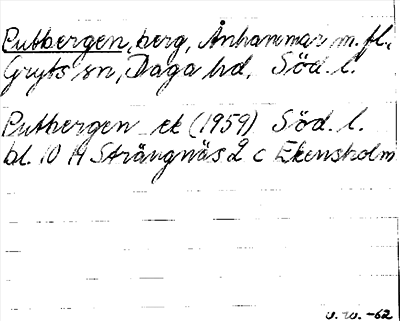 Putbergen, berg, Ånhammar m. fl.,
Gryts sn, Daga hd, Söd. l.
Putbergen ek (1959) Söd. l.
bl. 10 H Strängnäs 2 c Ekensholm
v. w. -62